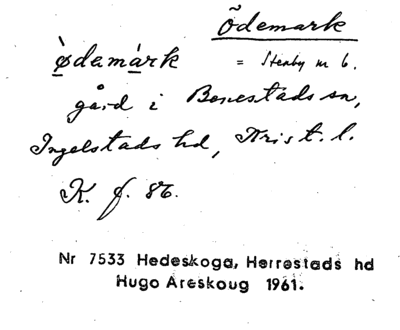 Õdemark
ø̀damàrk = Stenby n 6.
gård i Bonestads sn,
Ingelstads hd, Krist. l.
K. f. 86.
Nr 7533 Hedeskoga, Herrestads hd
Hugo Areskoug 1961.